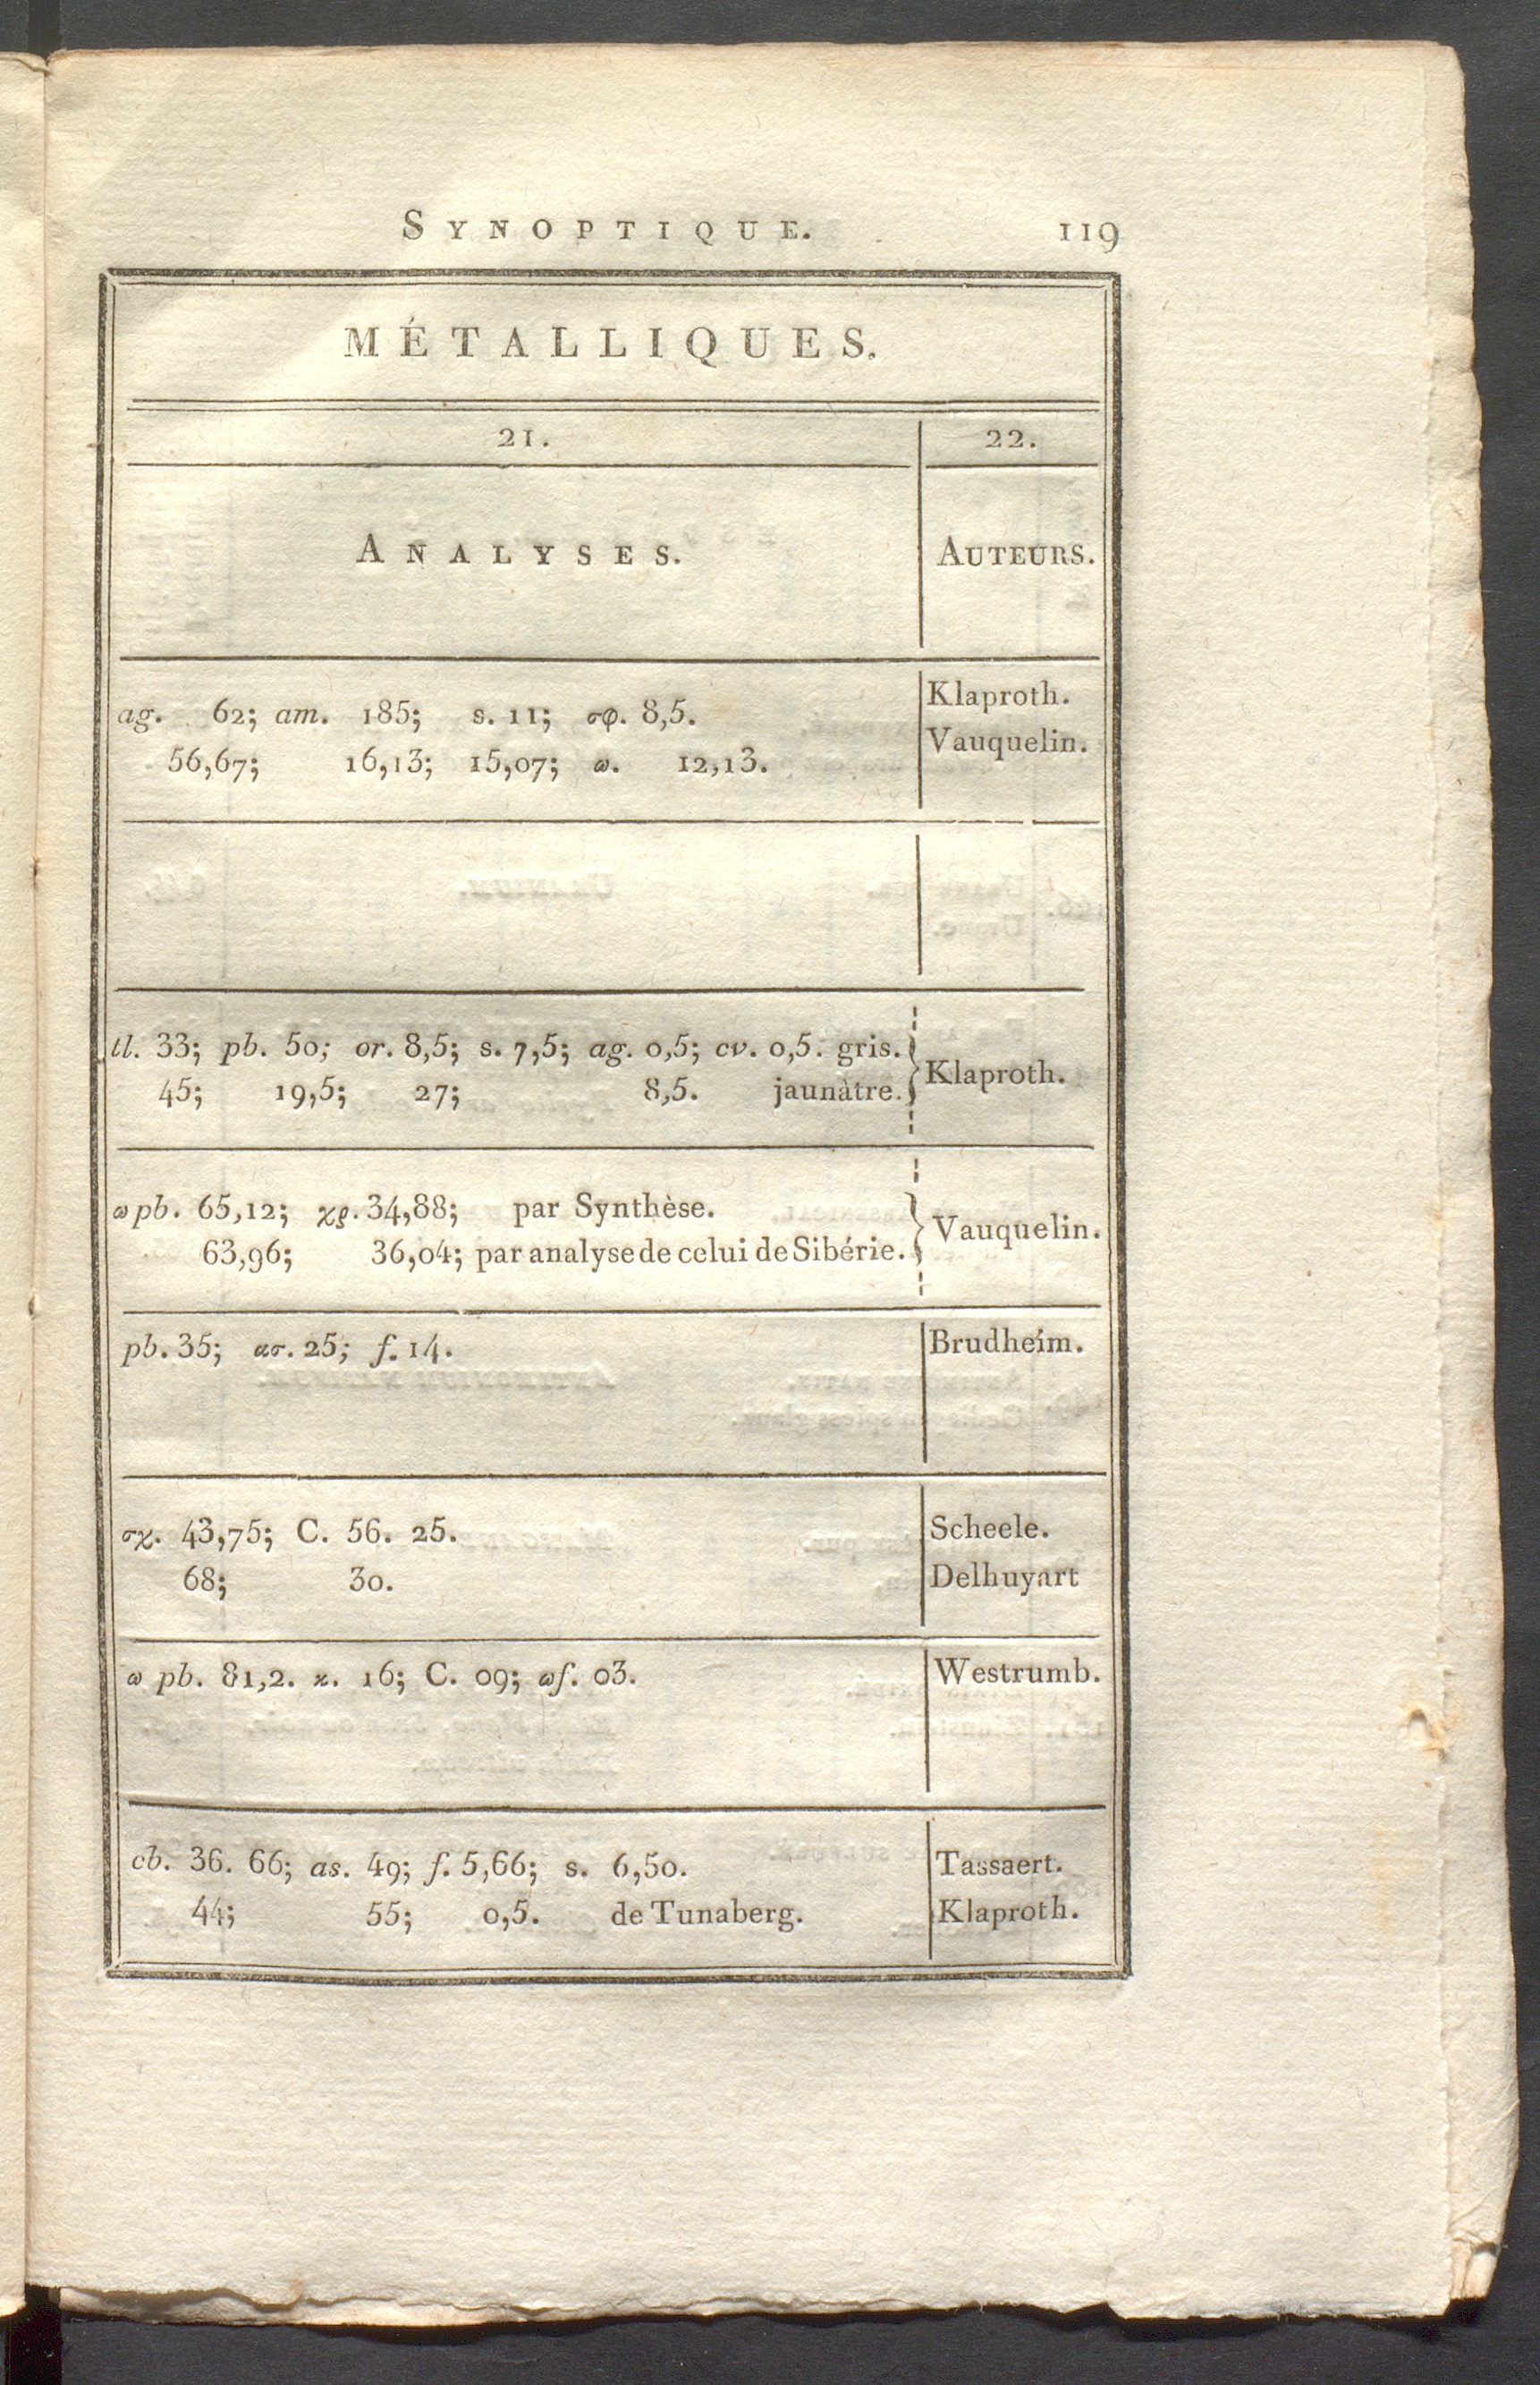 SYNOPTIQUE. 119
MÉTALLIQUES.
21. 22.
ANALYSES. AUTEURS.
ag. 62; am. 185; s. 11; σφ. 8,5. Klaproth.
56,67; 16,13; 15,07; ω. 12,13. Vauquelin.
tl. 33; pb. 50; or. 8,5; s. 7,5; ag. 0,5; cv. 0,5. gris.
45; 19,5; 27; 8,5. jaunàtre. } Klaproth.
ω pb. 65,12; χρ. 34,88; par Synthèse.
63,96; 36,04; par analyse de celui de Sibérie. } Vauquelin.
pb. 35; ασ. 25; f. 14. Brudheim.
σχ. 43,75; C. 56. 25. Scheele.
68; 30. Delhuyart
ω pb. 81,2. κ. 16; C. 09; ωf. 03. Westrumb.
cb. 36. 66; as. 49; f. 5,66; s. 6,50. Tassaert.
44; 55; 0,5. de Tunaberg. Klaproth.